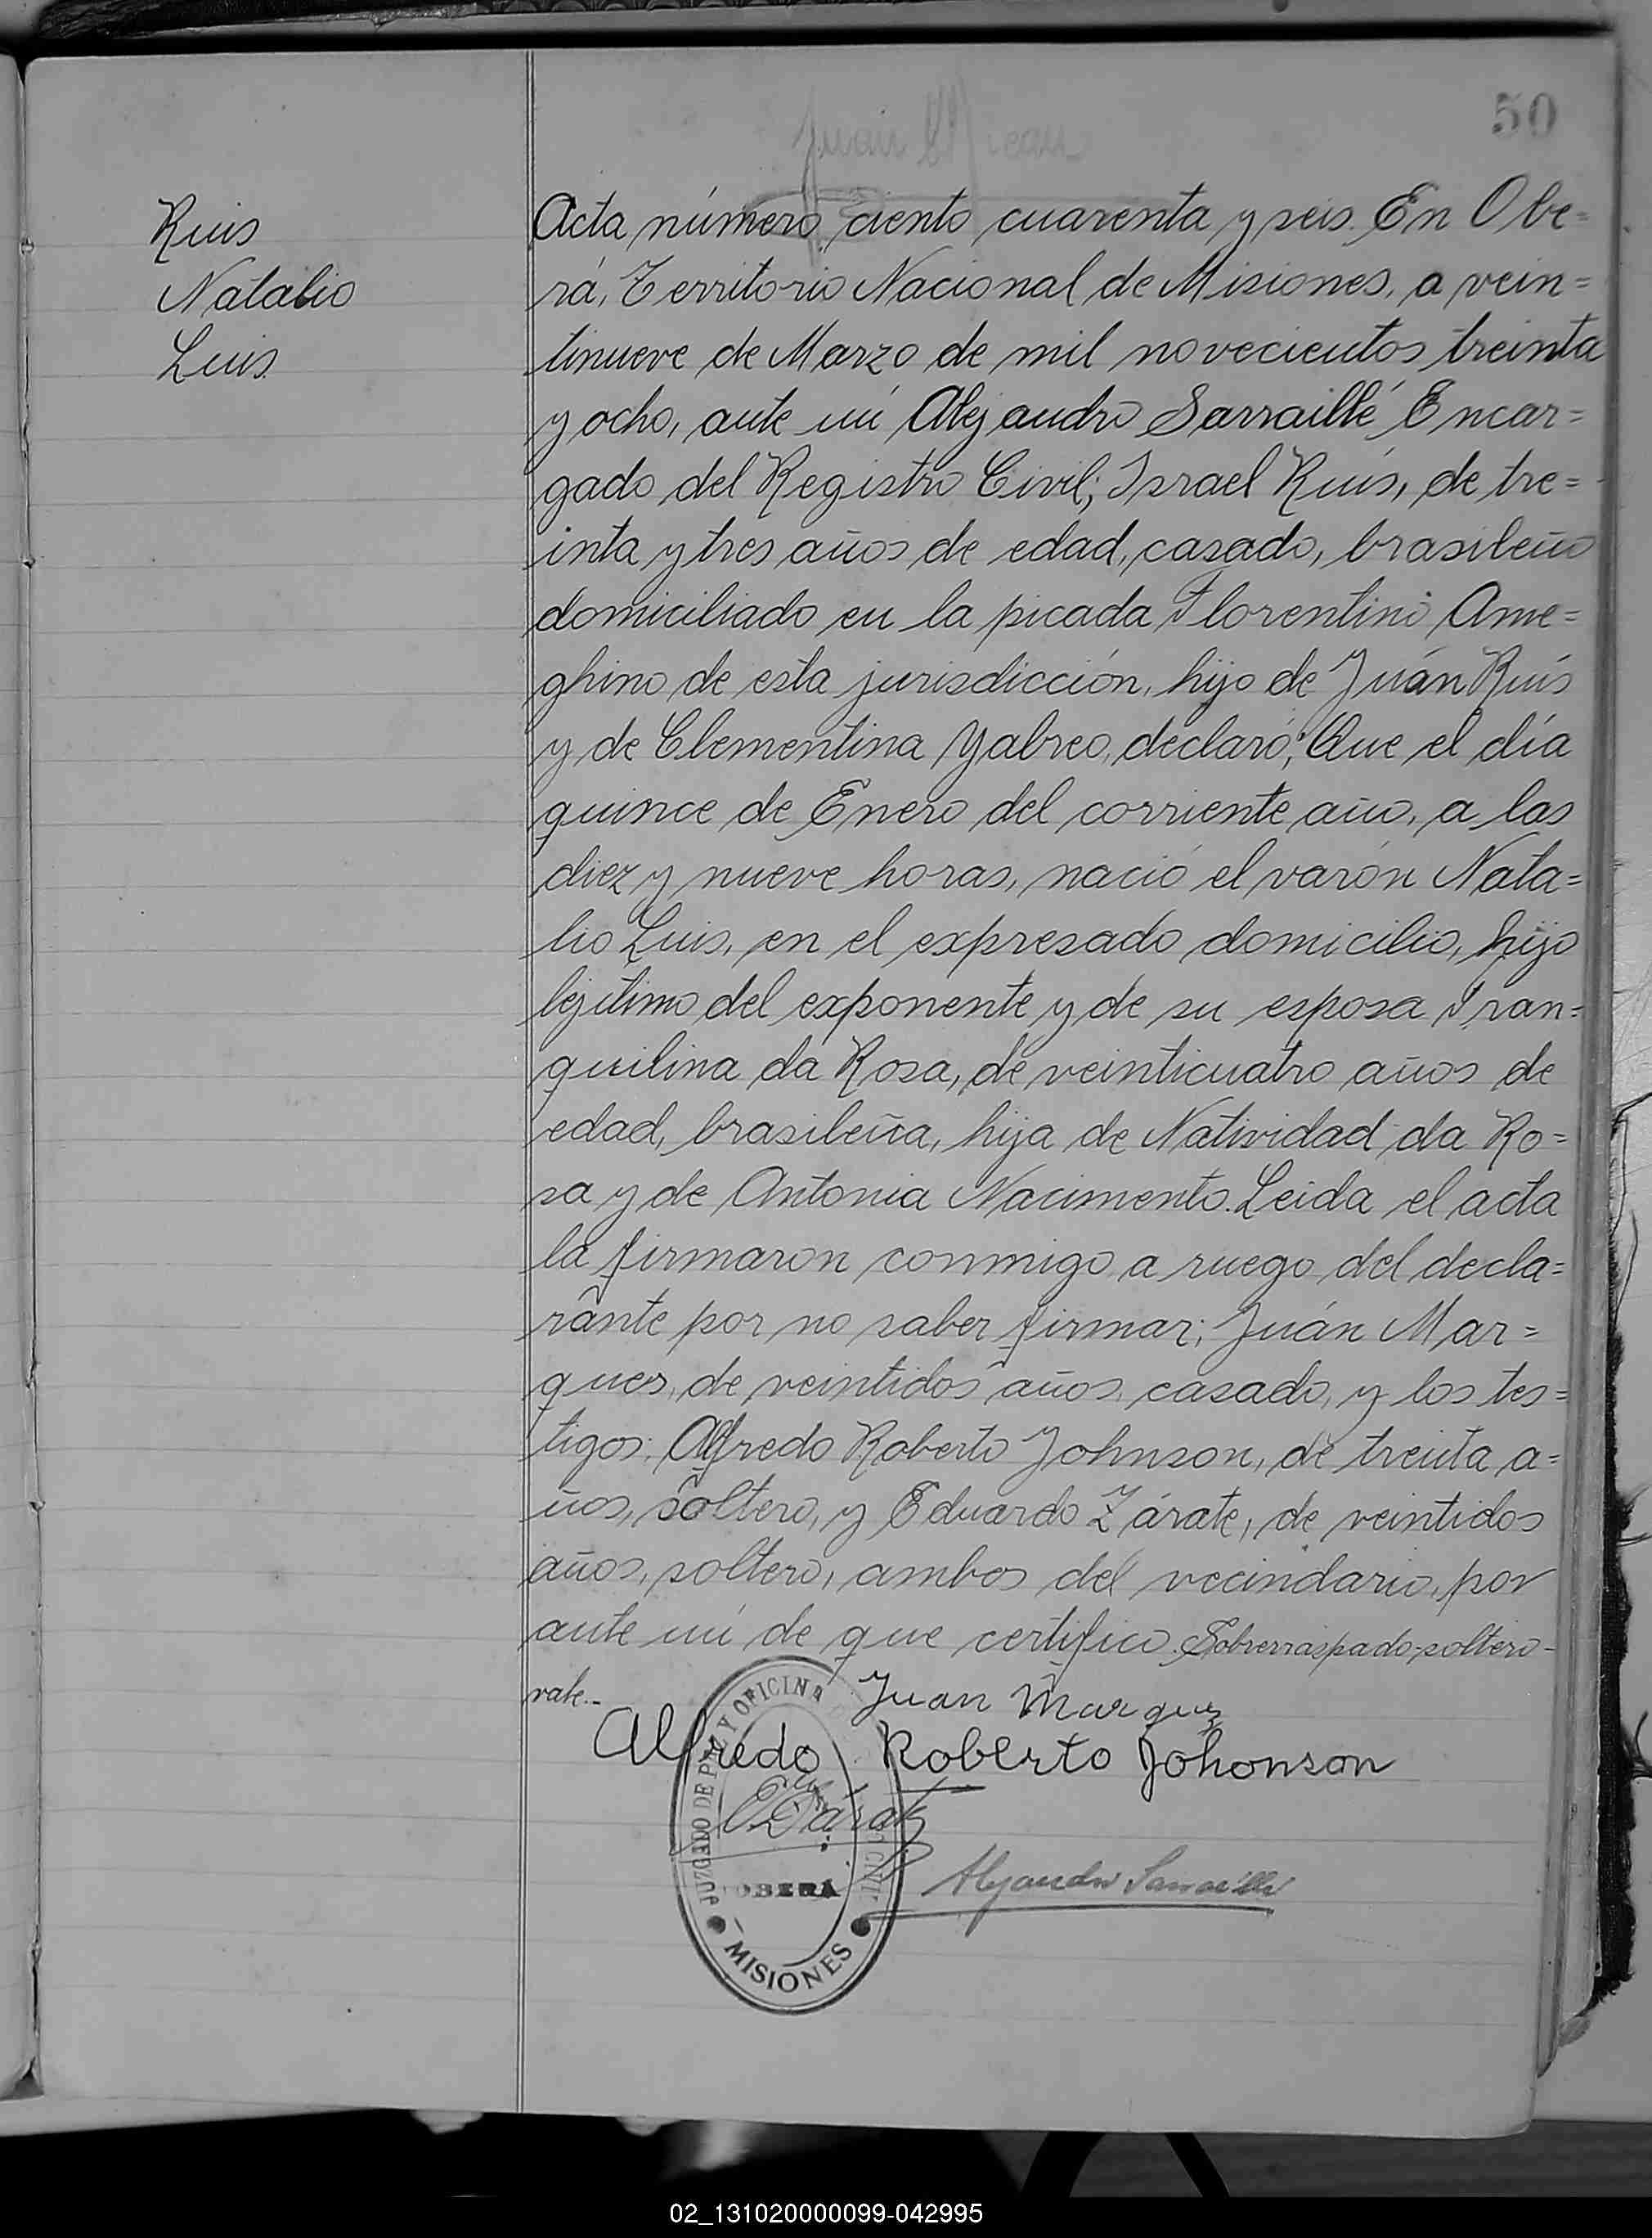 50
Ruis
Natalio
Luis
Acta número ciento cuarenta y seis. En Obe=
rá, Territorio Nacional de Misiones, a vein=
tinueve de Marzo de mil novecientos treinta
y ocho, ante mí Alejandro Sarraillé Encar=
gado del Registro Civil; Israel Ruis, de tre=
inta y tres años de edad, casado, brasileño
domiciliado en la picada Florentino Ame=
ghino de esta jurisdicción, hijo de Juán Ruis
y de Clementina Yabreo, declaró: Que el día
quince de Enero del corriente año, a las
diez y nueve horas, nació el varón Nata=
lio Luis, en el expresado domicilio, hijo
legítimo del exponente y de su esposa Tran=
quilina da Rosa, de veinticuatro años de
edad, brasileña, hija de Natividad da Ro=
sa y de Antonia Nacimento. Leida el acta
la firmaron conmigo a ruego del decla=
rante por no saber firmar; Juán Mar=
ques, de veintidos años, casado, y los tes=
tigos: Alfredo Roberto Johnson, de treinta a=
ños, soltero, y Eduardo Zárate, de veintidos
años, soltero, ambos del vecindario, por
ante mí de que certifico. Sobrerraspado-soltero-
vale.-
Juan Marquez
Alfredo Roberto Johonson
E Zárate
Alejandro Sarraillé
JUZGADO DE PAZ Y OFICINA CIVIL
OBERÁ
MISIONES
02_131020000099-042995